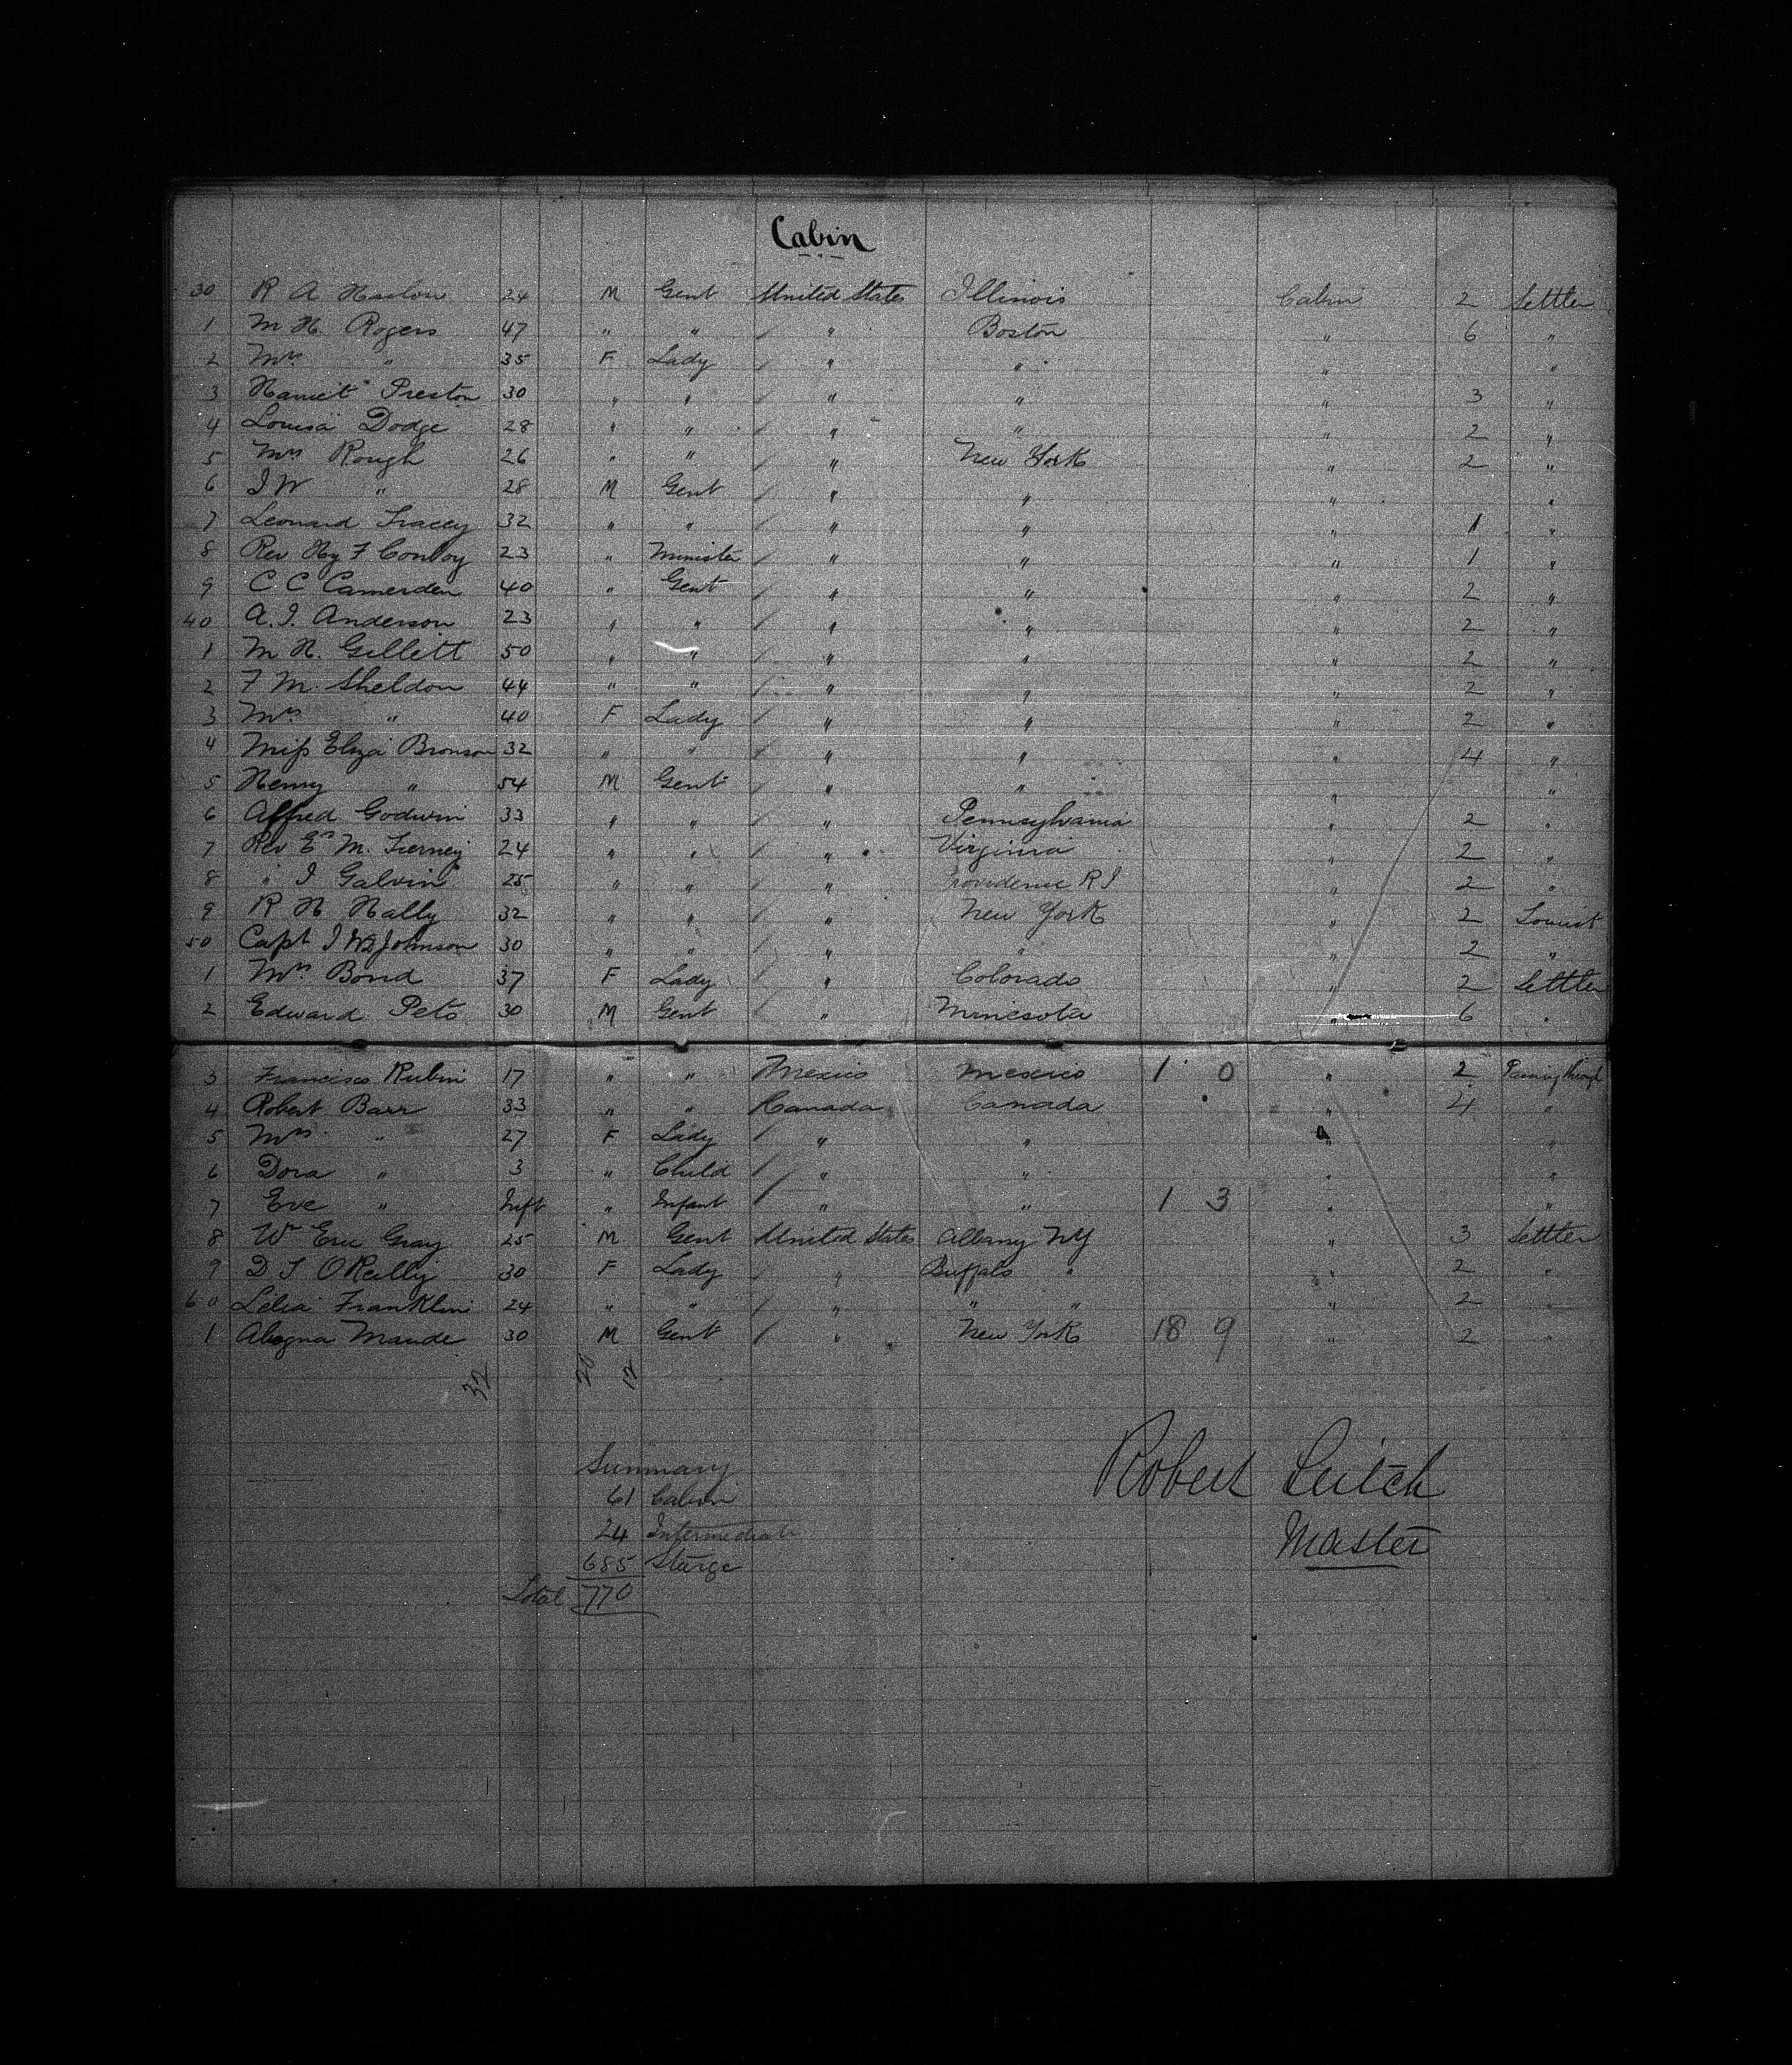 Cabin
30 R A 24 M Gent United States Illinois Cabin 2 Settler
1 M H. Rogers 47 " " " Boston " 6 "
2 Mrs " 35 F Lady " " " "
3 Harriet Preston 30 " " " " " 3 "
4 Louisa Dodge 28 " " " " " 2 "
5 Mrs Rough 26 " " " New York " 2 "
6 J W " 28 M Gent " " " "
7 Leonard Tracey 32 " " " " " 1 "
8 Rev Hy F Conroy 23 " Minister " " " 1 "
9 C C Camerden 40 " Gent " " " 2 "
40 A. J. Anderson 23 " " " " " 2 "
1 M H. Gillett 50 " " " " " 2 "
2 F M. Sheldon 44 " " " " " 2 "
3 Mrs " 40 F Lady " " " 2 "
4 Miss Eliza Bronson 32 " " " " " 4 "
5 Henry " 54 M Gent " " " "
6 Alfred Godwin 33 " " " Pennsylvania " 2 "
7 Rev Ed M. Tierney 24 " " " Virginia " 2 "
8 " J Galvin 25 " " " Providence R I " 2 "
9 R H Hally 32 " " " New York " 2 Tourist
50 Capt J Johnson 30 " " " " " 2 "
1 Mrs Bond 37 F Lady " Colorado " 2 Settler
2 Edward Peto 30 M Gent " Minesota " 6 "
3 Francisco Rubini 17 " " Mexico Mexico 1 0 " 2 Passing through
4 Robert Barr 33 " " Canada Canada " 4 "
5 Mrs " 27 F Lady " " " "
6 Dora " 3 " Child " " " "
7 Eve " Inft " Infant " " 1 3 " "
8 Wm Eric Gray 25 M Gent United States Albany NY " 3 Settler
9 D T O'Reilly 30 F Lady " Buffalo " " 2 "
60 Lelia Franklin 24 " " " " " " 2 "
1 Maude 30 M Gent " New York 18 9 " 2 "
32 20 12
Summary
61 Cabin
24 Intermediate
685 Sterge
Total 770
Robert Leitch
Master